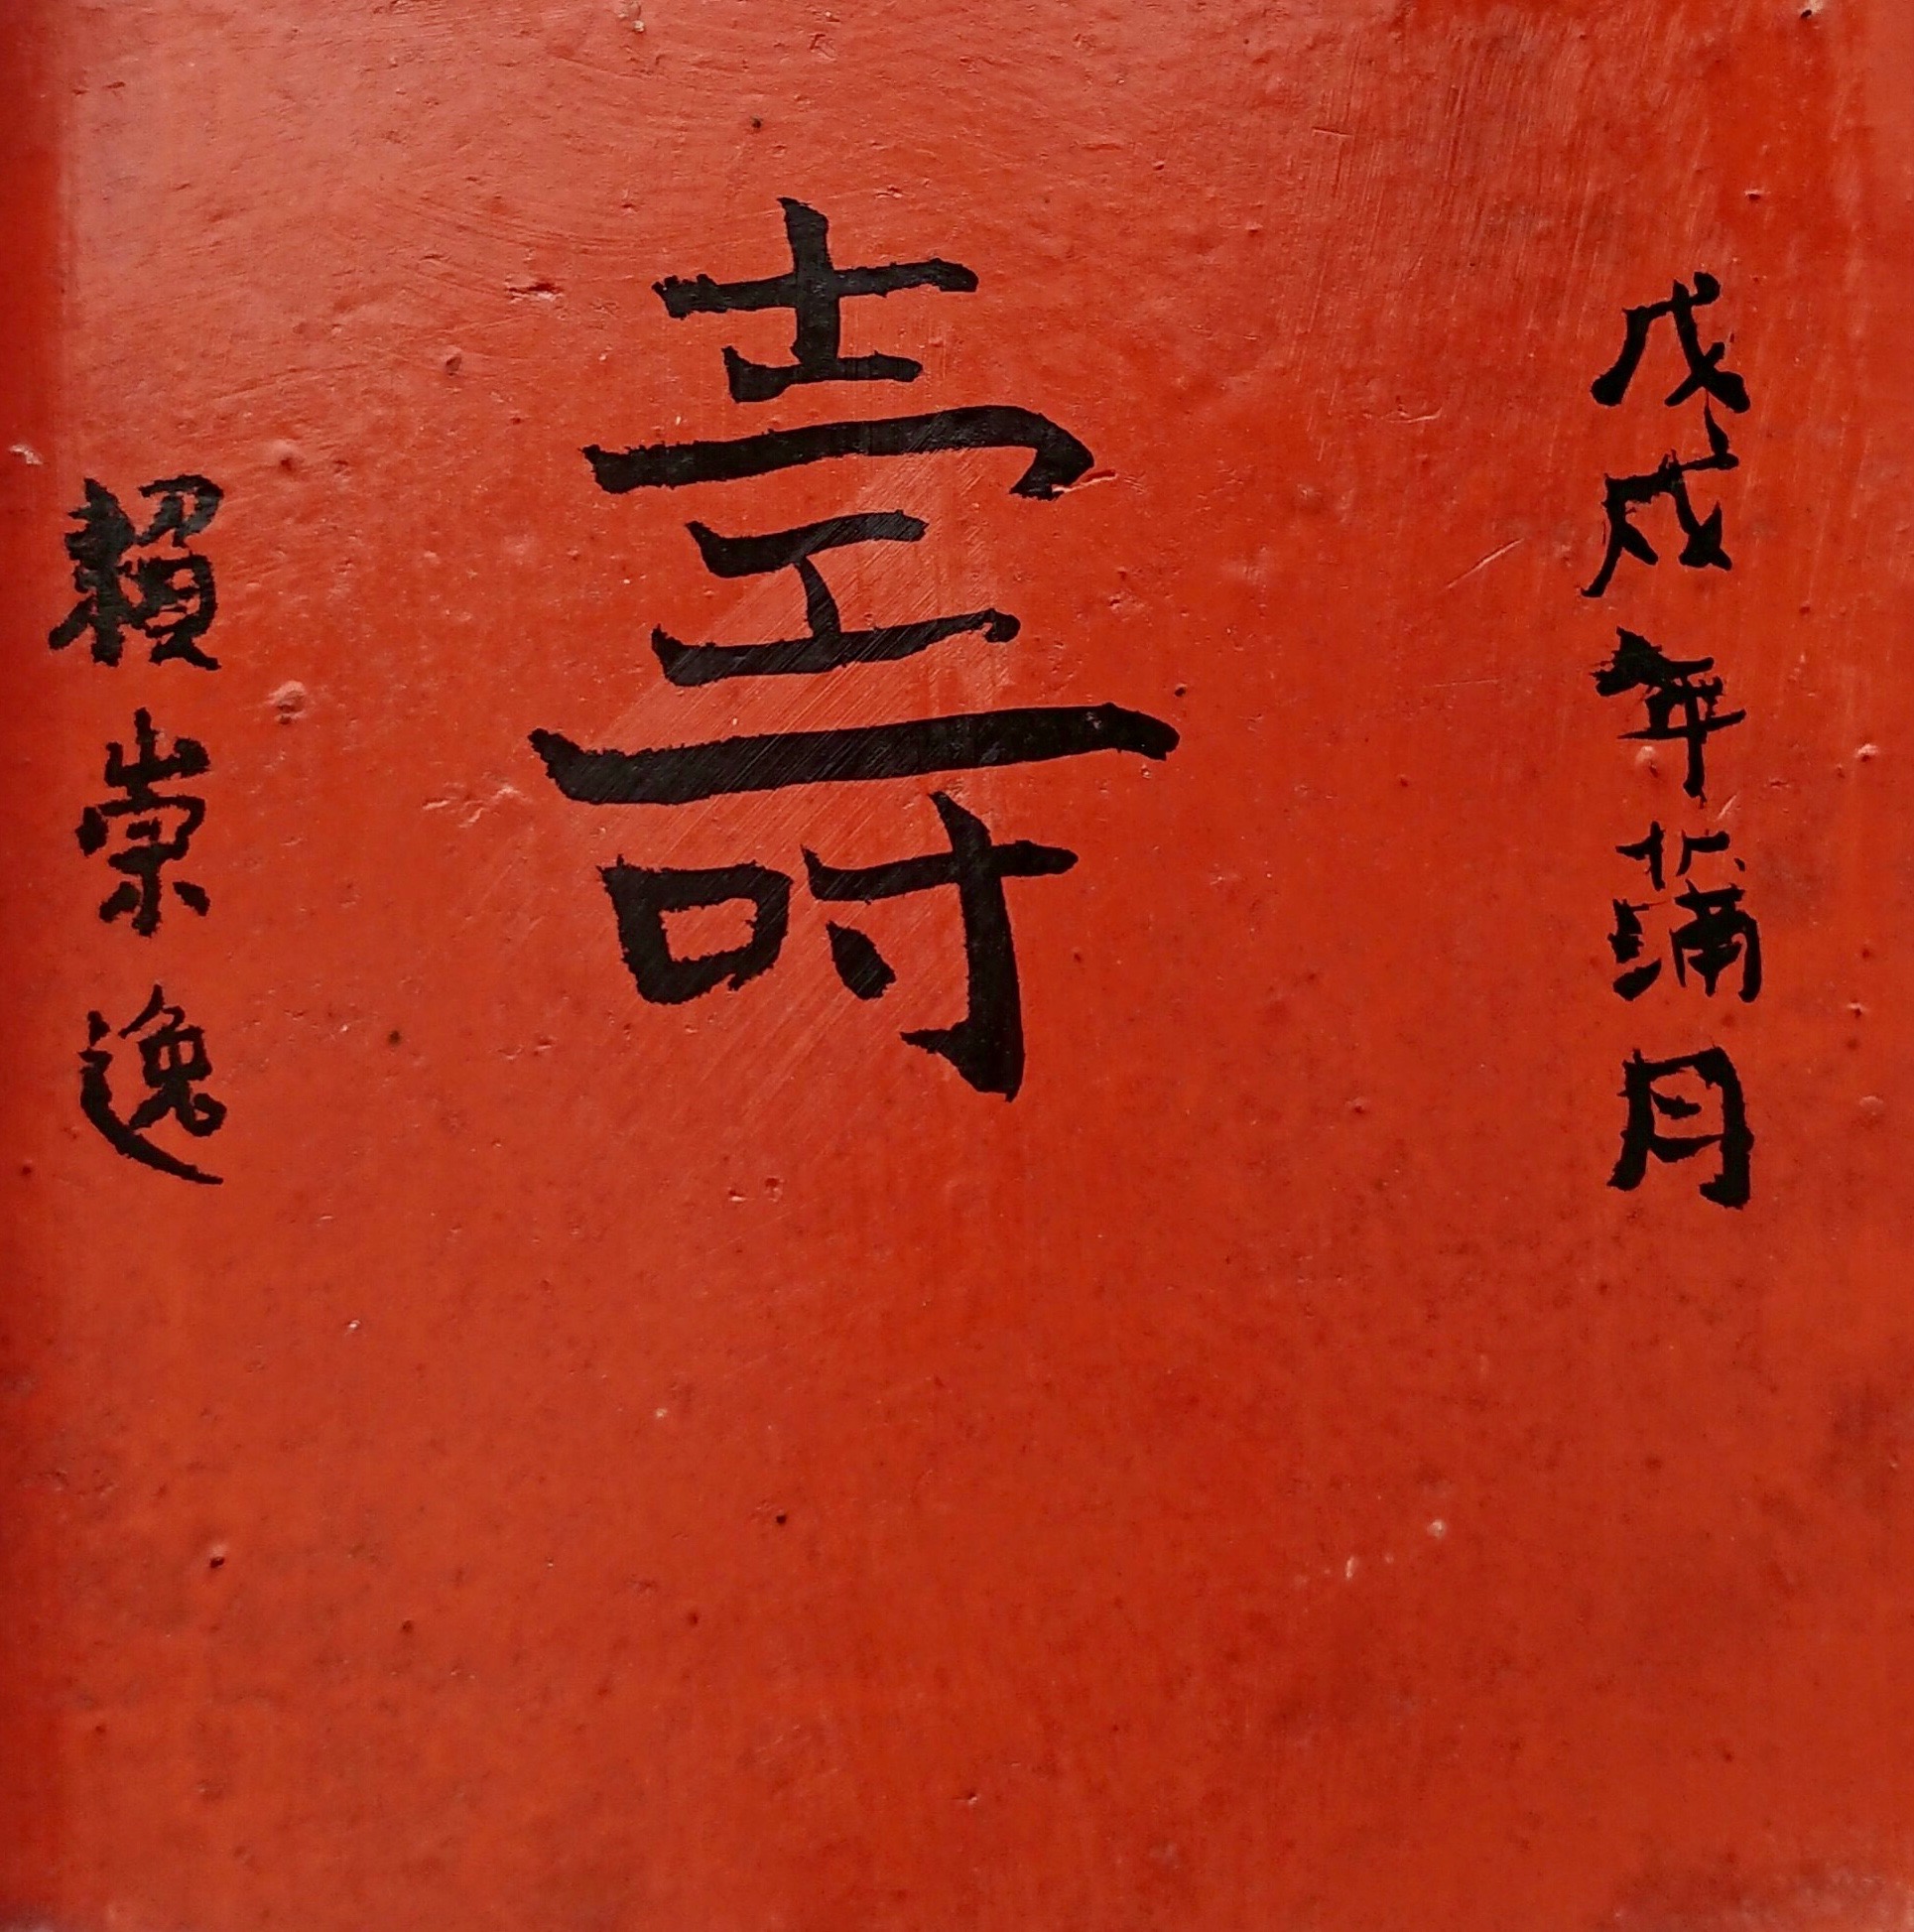 戊戌年蒲月
壽
賴崇逸